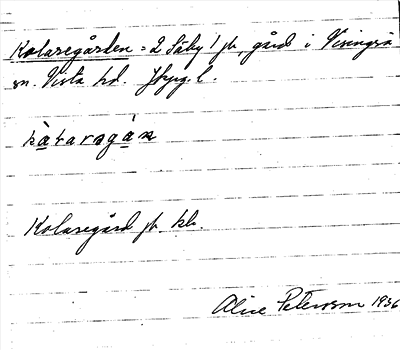 Kolaregården = 2 Säby 1 jb, gård i Visingsö
sn. Vista hd. Jkpg. l.
kàlarəgán
Kolaregård jb. kb.
Alice Petersson 1936